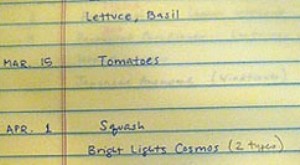 Lettuce, Basil
MAR. 15 Tomatoes
APR. 1 Squash
Bright Lights Cosmos (2 types)